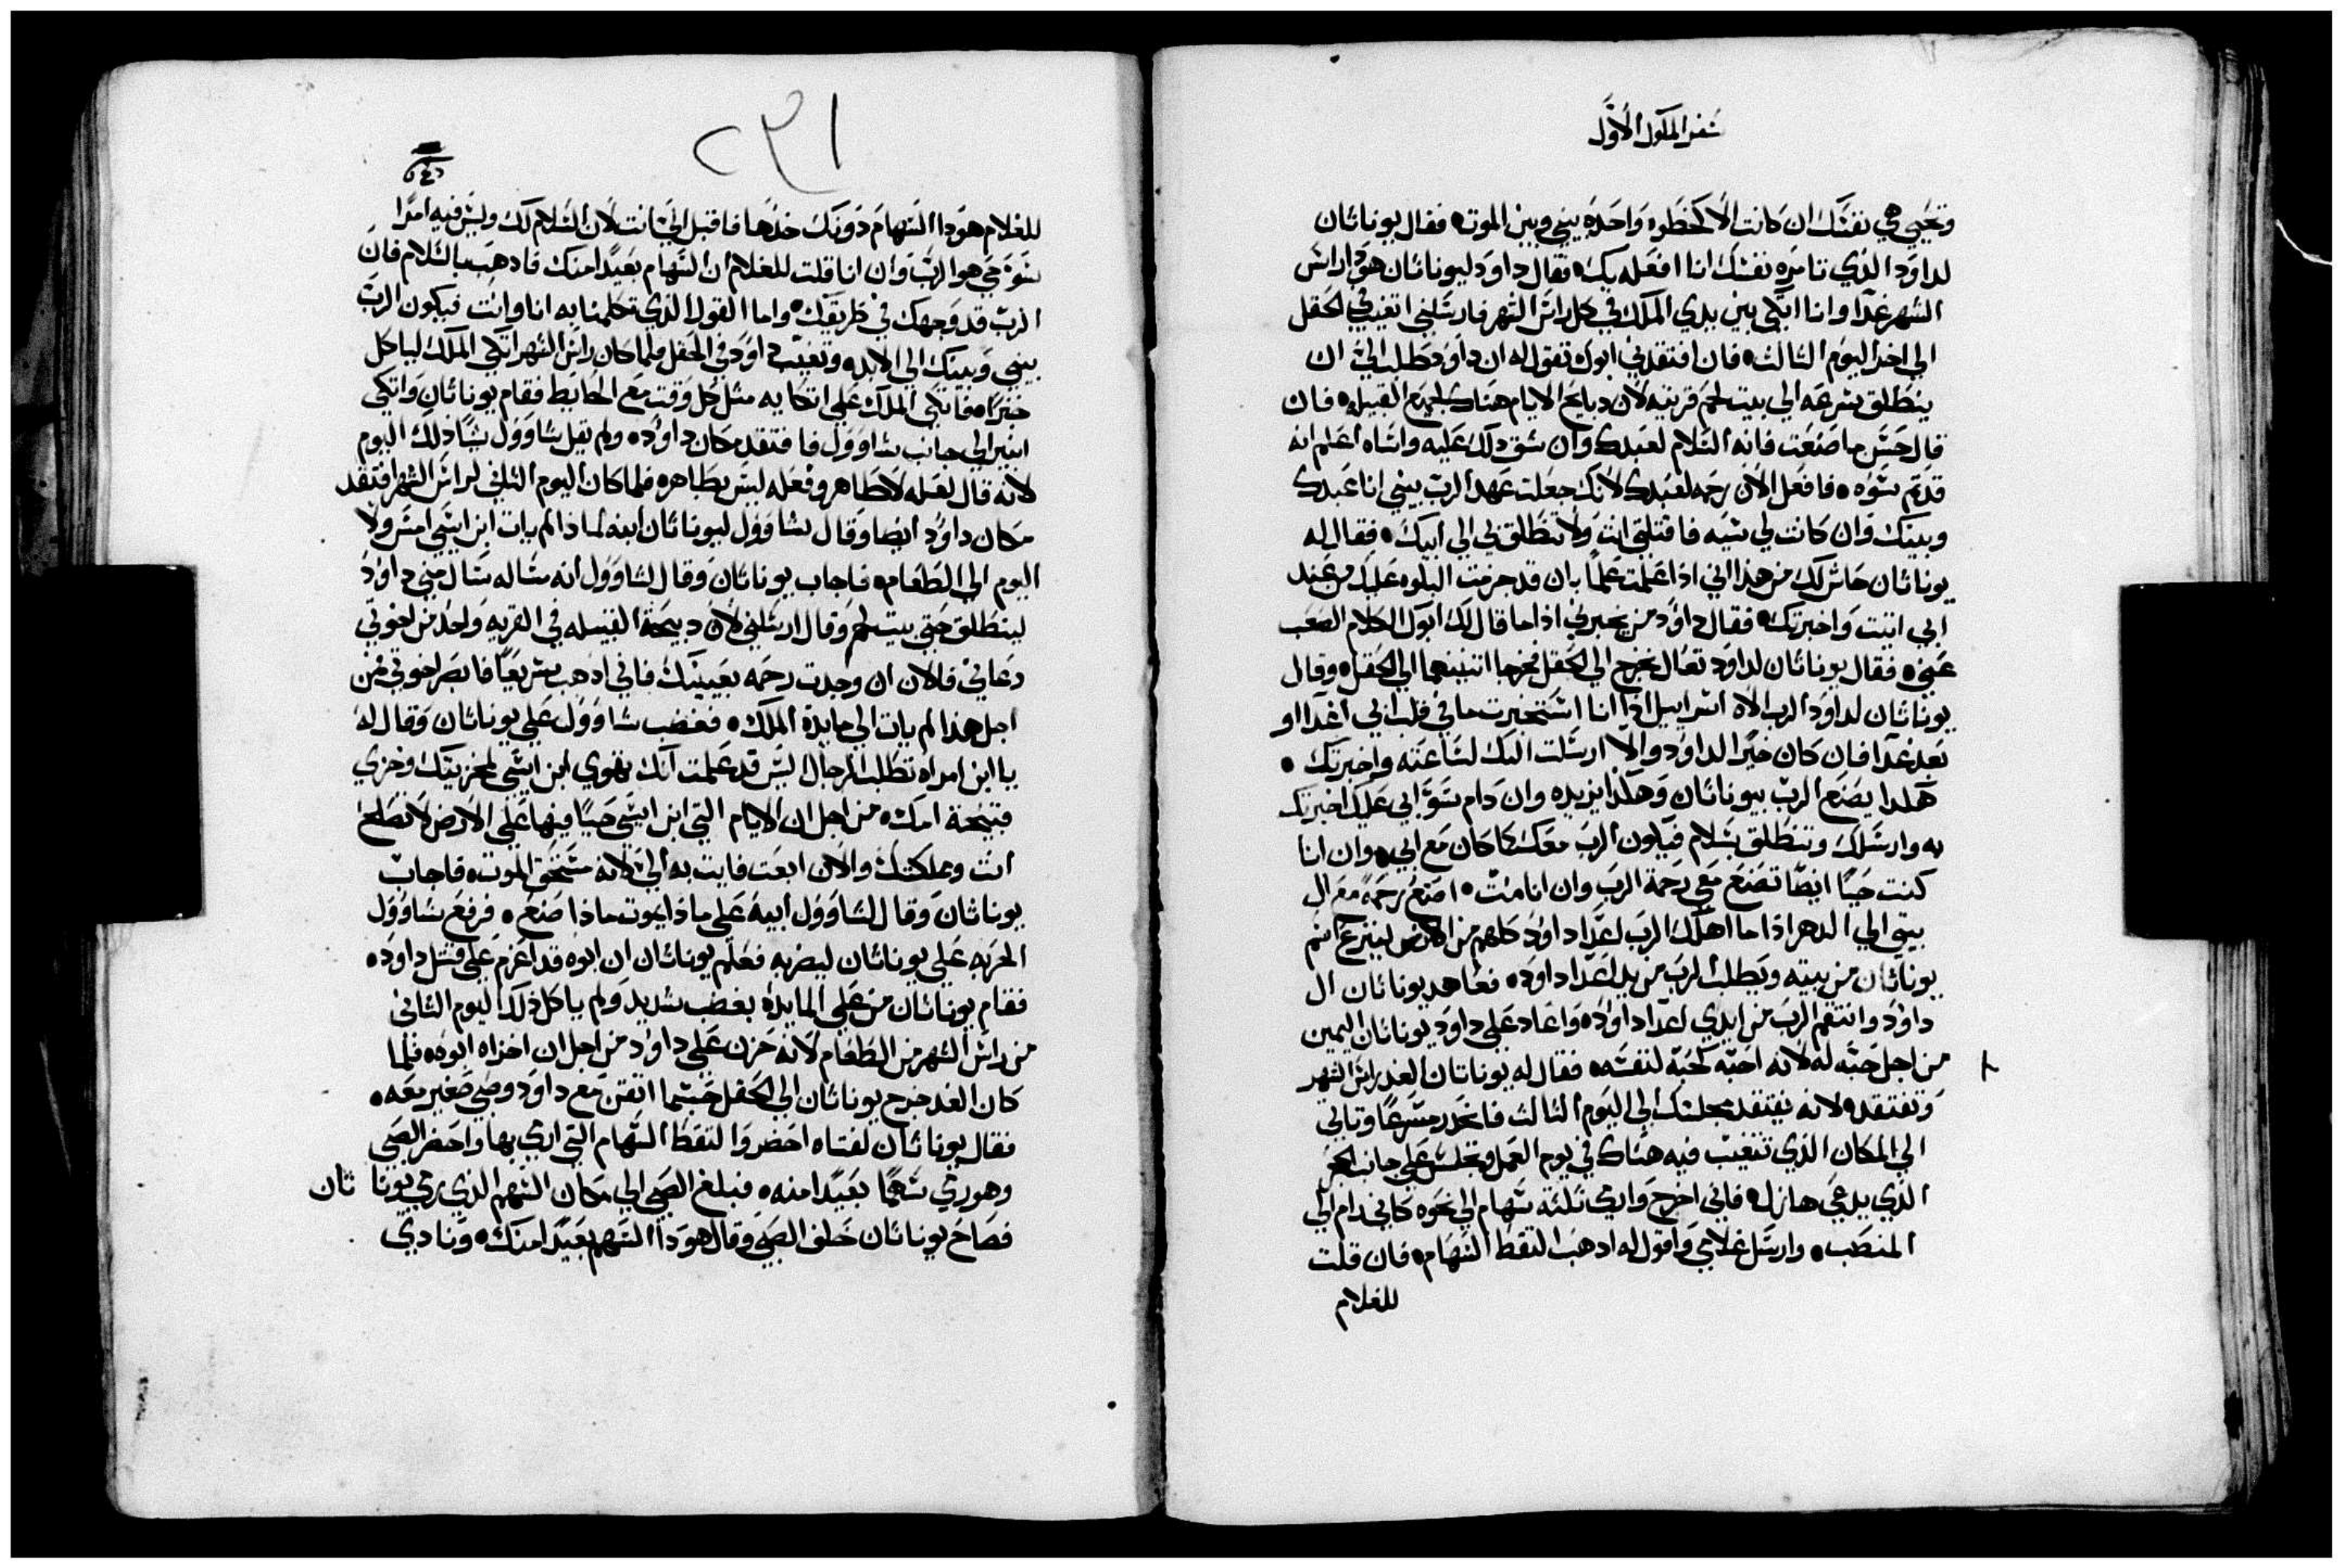 سفر الملوك الاول
وتحيي هي نفسك ان كانت الا كخطره واحده بيني وبين الموت فقال يوناثان
لداود الذي تامره نفسك انا افعله بك فقال داود ليوناثان هودا راس
الشهر غدا وانا اتكي بين يدي الملك في كل راس الشهر فارسلني اتغيب في الحقل
الي اخر اليوم الثالث فان افتقدني ابوك تقول له ان داود طلب الي ان
ينطلق بسرعه الي بيت لحم قريته لان دبايح الايام هناك لجميع القبيله فان
قال حسن ما صنعت فانه السلام لعبدك وان شق دلك عليه واساه اعلم انه
قد تم سوه فافعل الان رحمه لعبدك لانك جعلت عهد الرب بيني انا عبدك
وبينك وان كانت لي سيه فاقتلني انت ولا تنطلق بي الي ابيك فقال له
يوناثان حاش لك من هذا اني اذا علمت علما بان قد حزمت البلوه عليك من عند
ابي اتيت واخبرتك فقال داود من يخبرني اذا ما قال لك ابوك الكلام الصعب
عني فقال يوناثان لداود تعال نخرج الي الحقل فخرجا اتنينهما الي الحقل وقال
يوناثان لداود الرب الاه اسراييل اذا انا استخبرت ما في قلب ابي اغدا او
بعد غدا فان كان خيرا لداود والا ارسلت اليك لساعته واخبرتك
هكدا يصنع الرب بيوناثان وهكذا يزيده وان دام سو ابي عليك اخبرتك
به وارسلك وتنطلق بسلام فيكون الرب معك كما كان مع ابي وان انا
كنت حيا ايضا تصنع معي رحمة الرب وان انا مت اصنع رحمة مع ال
بيتي الي الدهر اذا ما اهلك الرب اعدا داود كلهم من الارض لينزع اسم
يوناثان من بيته ويطلب الرب من يد اعدا داود فعاهد يوناثان ال
داود وانتقم الرب من ايدي اعدا داود واعاد علي داود يوناثان اليمين
من اجل حبه له لانه احبه كحبه لنفسه فقال له يوناثان الغد راس الشهر
وتفتقد لانه يفتقد مجلسك الي اليوم الثالث فانحدر مسرعا وتاتي
الي المكان الذي تتغيب فيه هناك في يوم العمل وتجلس علي جانب الحجر
الذي يدعي هازل فاني اخرج وارمي ثلثه سهام الي نحوه كاني رام الي
المنصب وارسل غلامي واقول له ادهب التقط السهام فان قلت
للغلام
٢٩١
للغلام هودا السهام دونك خدها فاقبل الي انت لان السلام لك وليس فيه امرا
سو حي هو الرب وان انا قلت للغلام ان السهام بعيدا منك فادهب بالسلام فان
الرب قد وجهك في طريقك واما القول الذي تكلمنا به انا وانت فيكون الرب
بيني وبينك الي الابد وتغيب داود في الحقل ولما كان راس الشهر اتكي الملك لياكل
خبزا فاتكي الملك علي اتكايه مثل كل وقت مع الحايط فقام يوناثان واتكي
ابنير الي جانب شاوول فافتقد مكان داود ولم يقل شاوول شيا ذلك اليوم
لانه قال لعله لا طاهر وفعله ليس بطاهر فلما كان اليوم الثاني لراس الشهر افتقد
مكان داود ايضا وقال شاوول ليوناثان ابنه لماذا لم يات ابن ايشي امس ولا
اليوم الي الطعام فاجاب يوناثان وقال لشاوول انه ساله سال مني داود
لينطلق حتي بيت لحم وقال ارسلني لان دبيحة القبيله في القريه واحد من اخوتي
دعاني فالان ان وجدت رحمه بعينيك فاني ادهب سريعا فابصر اخوتي من
اجل هذا لم يات الي مايدة الملك فغضب شاوول علي يوناثان وقال له
يا ابن امراه تطلب الرجال ليس قد علمت انك تهوي ابن ايشي لمخزيتك وخزي
فتيحة امك من اجل ان الايام التي ابن ايشي حيا فيها علي الارض لا تصلح
انت ومملكتك والان ابعت فايت به الي لانه مستحق الموت فاجاب
يوناثان وقال لشاوول ابيه علي ماذا يموت ماذا صنع فرفع شاوول
الحربه علي يوناثان ليضربه فعلم يوناثان ان ابوه قد اعزم علي قتل داود
فقام يوناثان من علي المايده بغضب شديد ولم ياكل ذلك اليوم الثاني
من راس الشهر من الطعام لانه حزن علي داود من اجل ان اخزاه ابوه فلما
كان الغد خرج يوناثان الي الحقل حسبما اتفق مع داود وصبي صغير معه
فقال يوناثان لفتاه احضر والتقط السهام التي ارمي بها واحضر الصبي
وهو رمي سهما بعيدا منه فبلغ الصبي الي مكان السهم الذي رمي يوناثان
فصاح يوناثان خلف الصبي وقال هودا السهم بعيدا منك ونادي